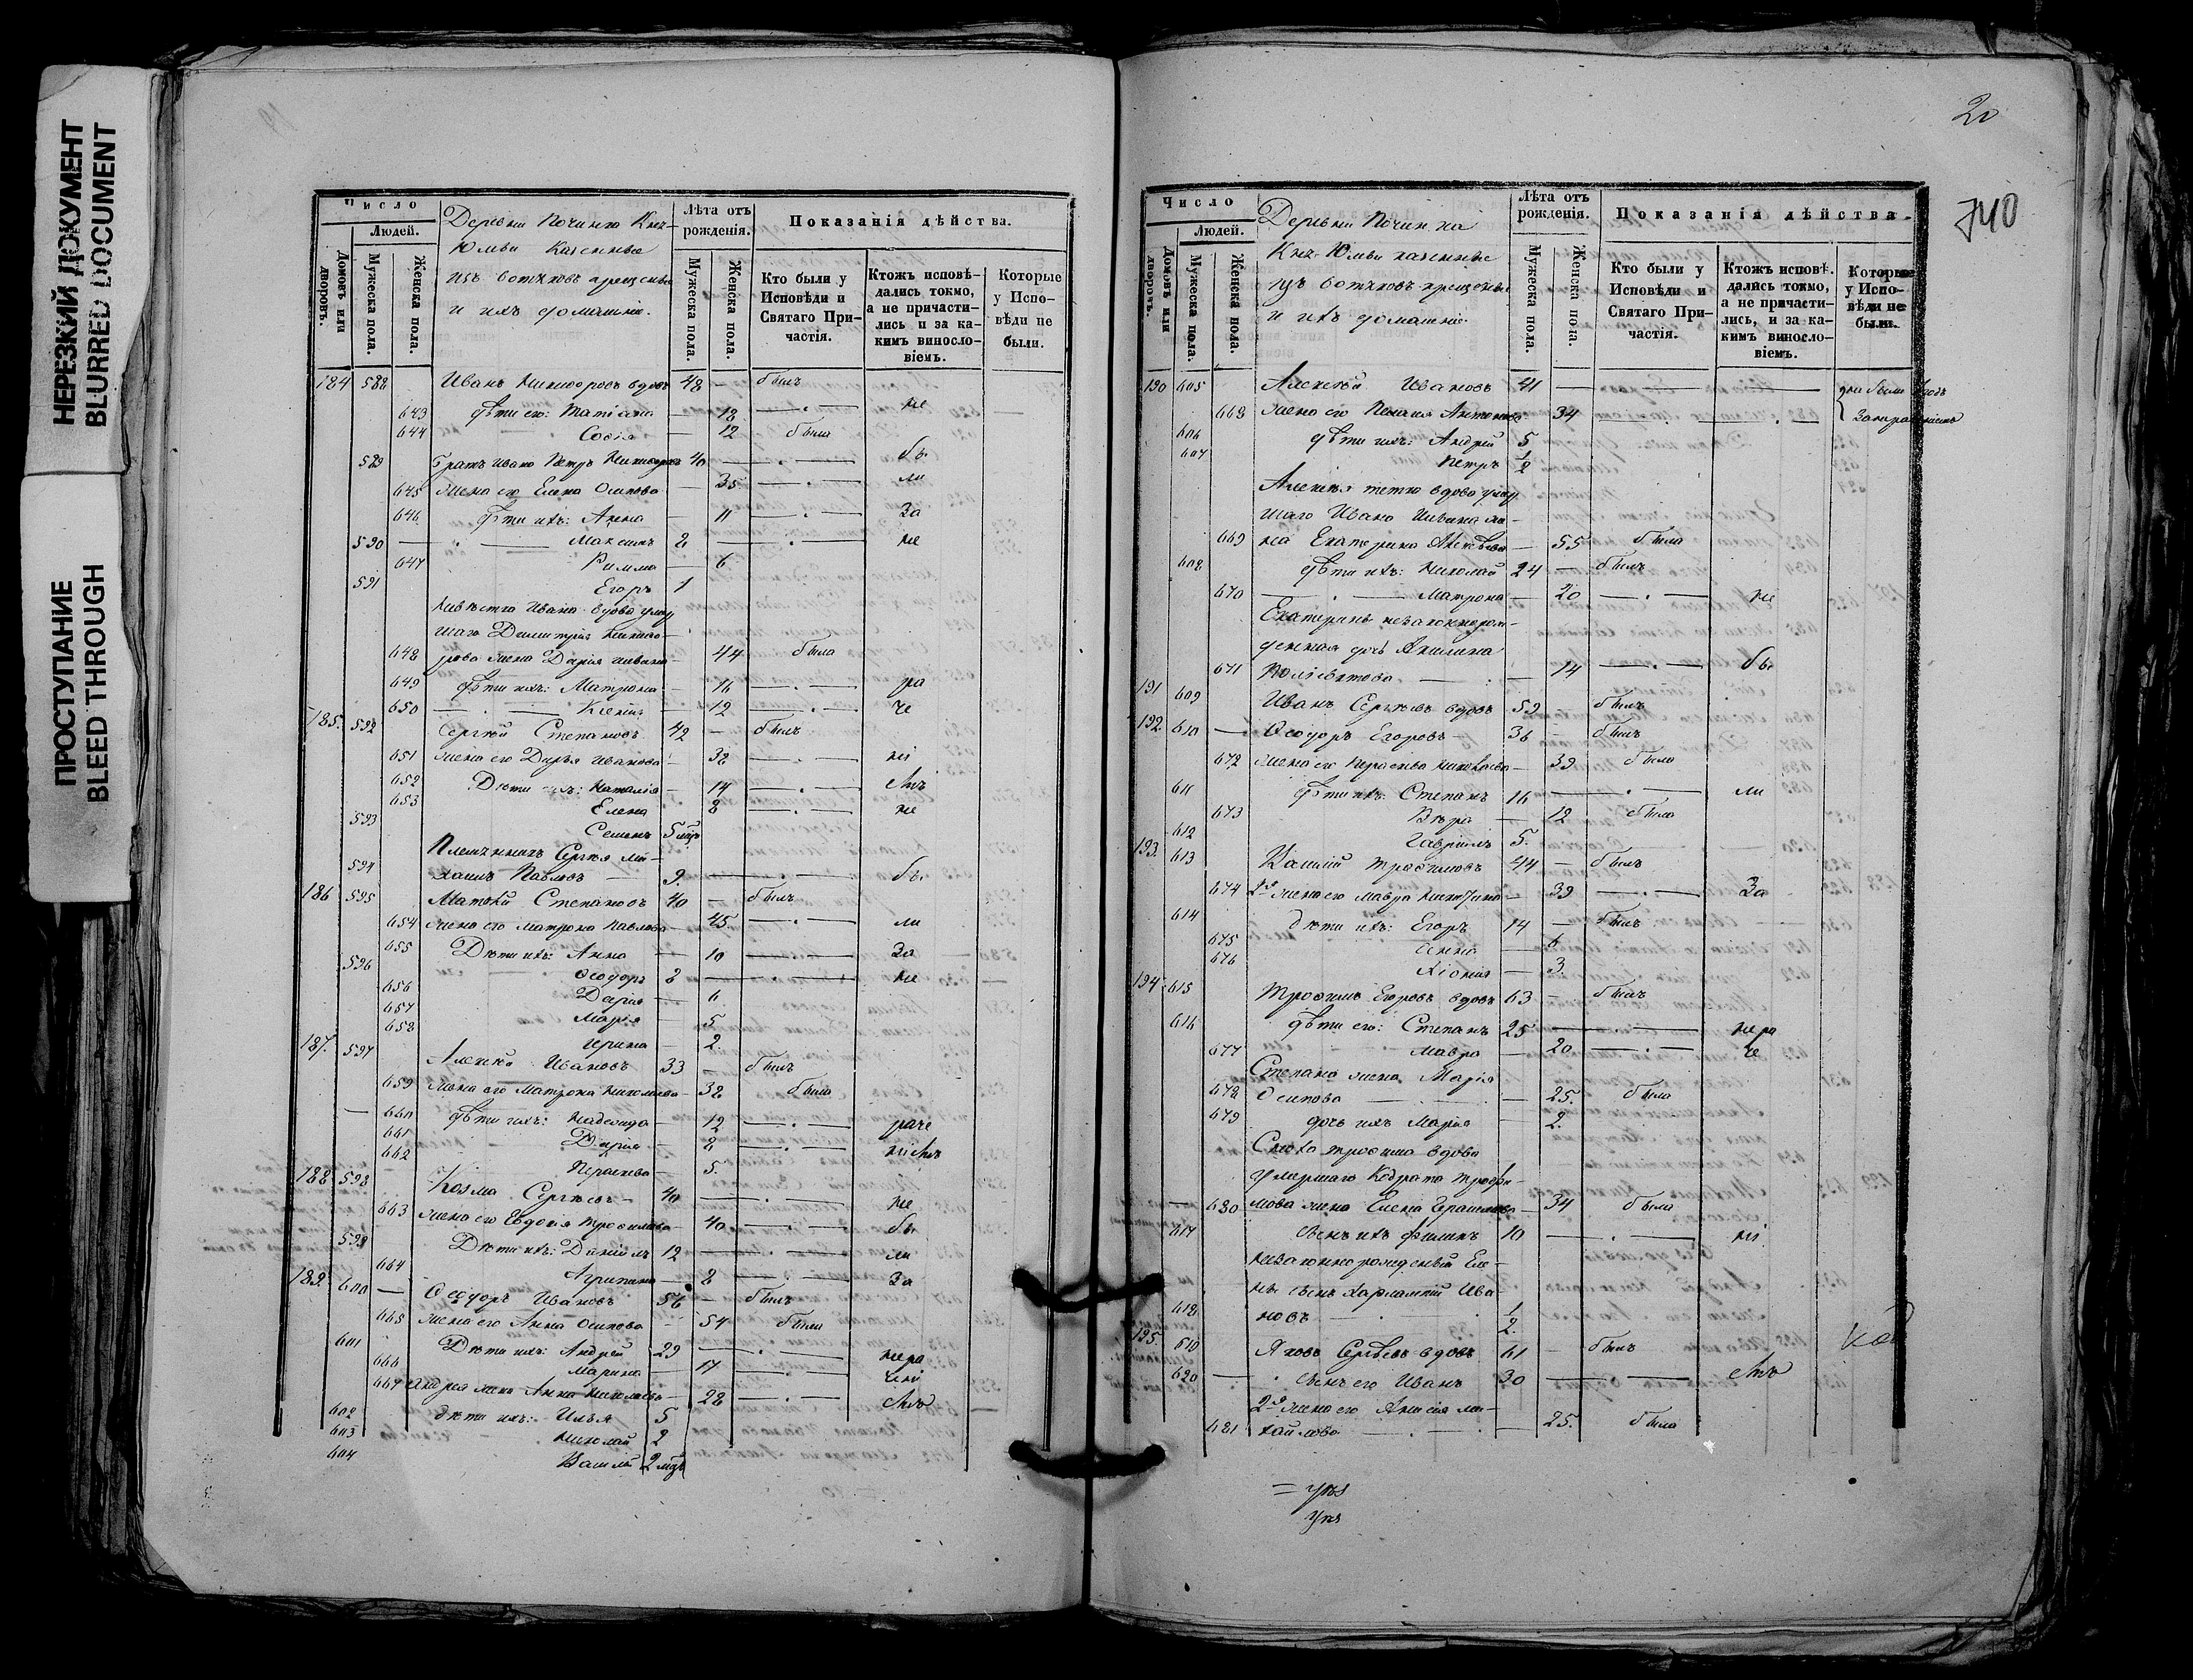 НЕРЕЗКИЙ ДОКУМЕНТ
BLURRED DOCUMENT
ПРОСТУПАНИЕ
BLEED THROUGH
Число
Людей.
Домовъ или дворовъ.
Мужеска пола.
Женска пола.
Деревни Починка Кне-
Юмьи Казенные
изъ вотяковъ крещеные
и ихъ домашніе.
Лѣта отъ рожденія.
Мужеска пола.
Женска пола.
Показанія дѣйства.
Кто были у Исповѣди и Святаго Причастія.
Ктожъ исповѣдались токмо, а не причастились и за какимъ винословіемъ.
Которые у Исповѣди не были.
184 588 Иванъ Никифоровъ вдовъ 48 — былъ
643 дѣти его: Татіана — 18 — не
644 Софія — 12 была
589 Братъ Ивана Петръ Никифоровъ 40 — бы
645 жена его Елена Осипова — 35 — ли
646 дѣти ихъ: Анна — 11 — за
590 Максимъ 8 — не
647 Римма — 6
591 Егоръ 1
Невѣстка Ивана вдова умер
шаго Димитрія Никифо-
648 рова жена Дарія Иванова — 44 была
649 дѣти ихъ: Матрона — 16 — ра
650 Ксенія — 12 — че
185. 592 Сергѣй Степановъ 42 — былъ
651 жена его Дарья Иванова — 38 — ні
652 Дѣти ихъ: Наталія — 14 — емъ
653 Елена 8 — не
593 Семенъ 5 мцъ
Племянникъ Сергѣя Ми-
594 хаилъ Павловъ — 9. — бы
186 595 Матвѣй Степановъ 40 — былъ
654 жена его Матрона Павлова — 45 — ли
655 Дѣти ихъ: Анна — 10 — За
596 Ѳеодоръ 8 — не
656 Дарія — 6
657 Марія — 5
658 Ирина — 2.
187. 597 Алексѣй Ивановъ 33 — былъ
659 жена его Матрона Николаева — 32 была
660 дѣти ихъ: Надежда — 12 — раче
661 Дарія — 8 — ніемъ
662 Параскева — 5.
188 598 Козма Сергѣевъ — 40 — не
663 жена его Евдокія Трофимова — 40 — бы
599 Дѣти ихъ: Даніилъ 12 — ли
664 Агрипина — 8 — За
189. 600 — Ѳеодоръ Ивановъ 56 — былъ
665 жена его Анна Осипова — 54 была
601 Дѣти ихъ: Андрей 29 — нера
666 Марина — 17 — чені
667 Андрея жена Анна Николаева — 28 — емъ
602 дѣти ихъ: Илья 5
603 Николай 2
604 Василій 2 мцъ
20
740
Число
Людей.
Домовъ или дворовъ.
Мужеска пола.
Женска пола.
Деревни Починка
Кне-Юмьи казенные
изъ вотяковъ крещеные
и ихъ домашніе.
Лѣта отъ рожденія.
Мужеска пола.
Женска пола.
Показанія дѣйства.
Кто были у Исповѣди и Святаго Причастія.
Ктожъ исповѣ. дались токмо, а не причастились, и за какимъ винословіемъ.
Которые у Исповѣди не были.
190 605 Алексѣй Ивановъ 41 —
668 жена его Пелагія Антонова — 34 —
606 дѣти ихъ: Андрей 5
607 Петръ 1/2
Алексѣя тетка вдова умер
шаго Ивана же-
669 на Екатерина — 55 была
608 дѣти ихъ: Николай 24 — былъ
670 Матрона — 20 — не
Екатерины незаконнорож-
денная дочь Акилина
671 — 14 — бы
191 609 Иванъ Сергѣевъ вдовъ 59 былъ
192. 610 — Ѳеодоръ Егоровъ — 36 — былъ
672 жена его Параскева Николаева — 39 была
611 дѣти ихъ: Степанъ 16 — ли
673 Вѣра — 12 была
612 Гавріилъ 5.
193. 613 Василій Трофимовъ 44 — былъ
674 2я жена его Мавра — 39 — За
614 дѣти ихъ: Егоръ 14 — былъ
675 Анна — 6
676 Хіонія — 3
194 615 Трофимъ Егоровъ вдовъ 63 — былъ
616 дѣти его: Степанъ 25 — нера
677 Мавра — 20 — че
Степана жена Марія
678 Осипова — 25. была
679 дочь ихъ Марія — 2.
Сноха Трофима вдова
умершаго Кодрата Трофи-
680 мова жена Елена Герасимова — 34 была
617 сынъ ихъ Филипъ 10 — ні
незаконнорожденный Еле-
ны сынъ Харлампій Ива
618 новъ — 1/2.
195. 619 Яковъ Сергѣевъ вдовъ 61 — былъ
620 — сынъ его Иванъ 30 — емъ
2я жена его Анисія Ми-
681 хайлова — 25. была